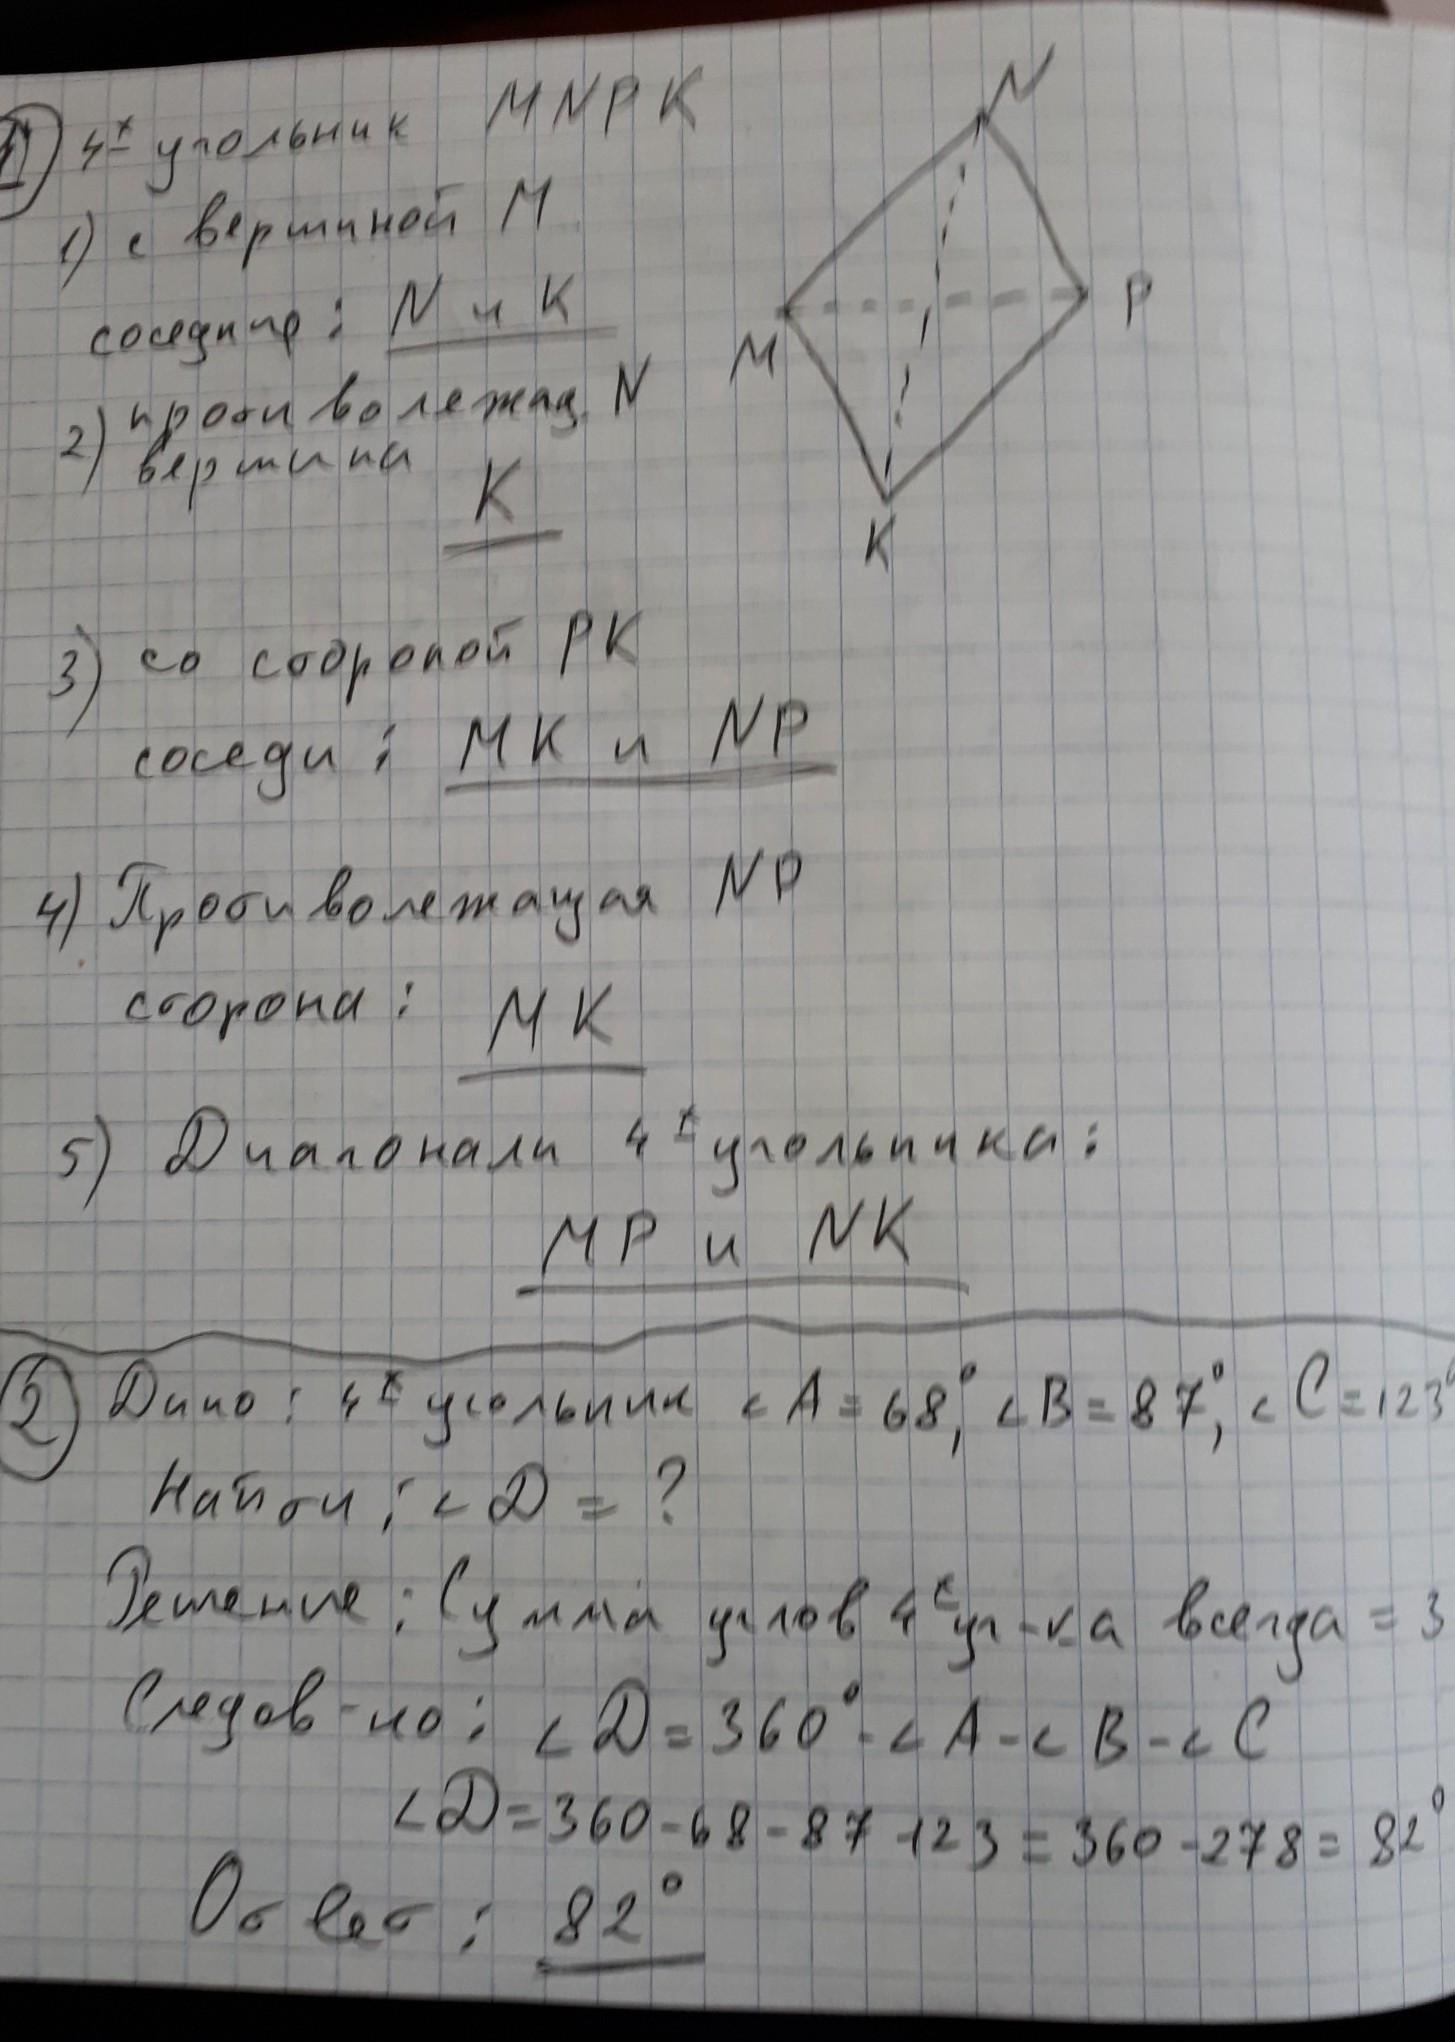 1) 4х угольник MNPK
1) с вершиной M
соседние: N и K
2) противолежащ. N
вершина
K
N
M
P
K
3) со стороной PK
соседи: MK и NP
4) Противолежащая NP
сторона: MK
5) Диагонали 4х угольника:
MP и NK
2) Дано: 4х угольник ∠A=68°, ∠B=87°, ∠C=123°
Найти: ∠D = ?
Решение: Сумма углов 4х уг-ка всегда = 3
Следов-но: ∠D=360°-∠A-∠B-∠C
∠D=360-68-87-123=360-278=82°
Ответ: 82°